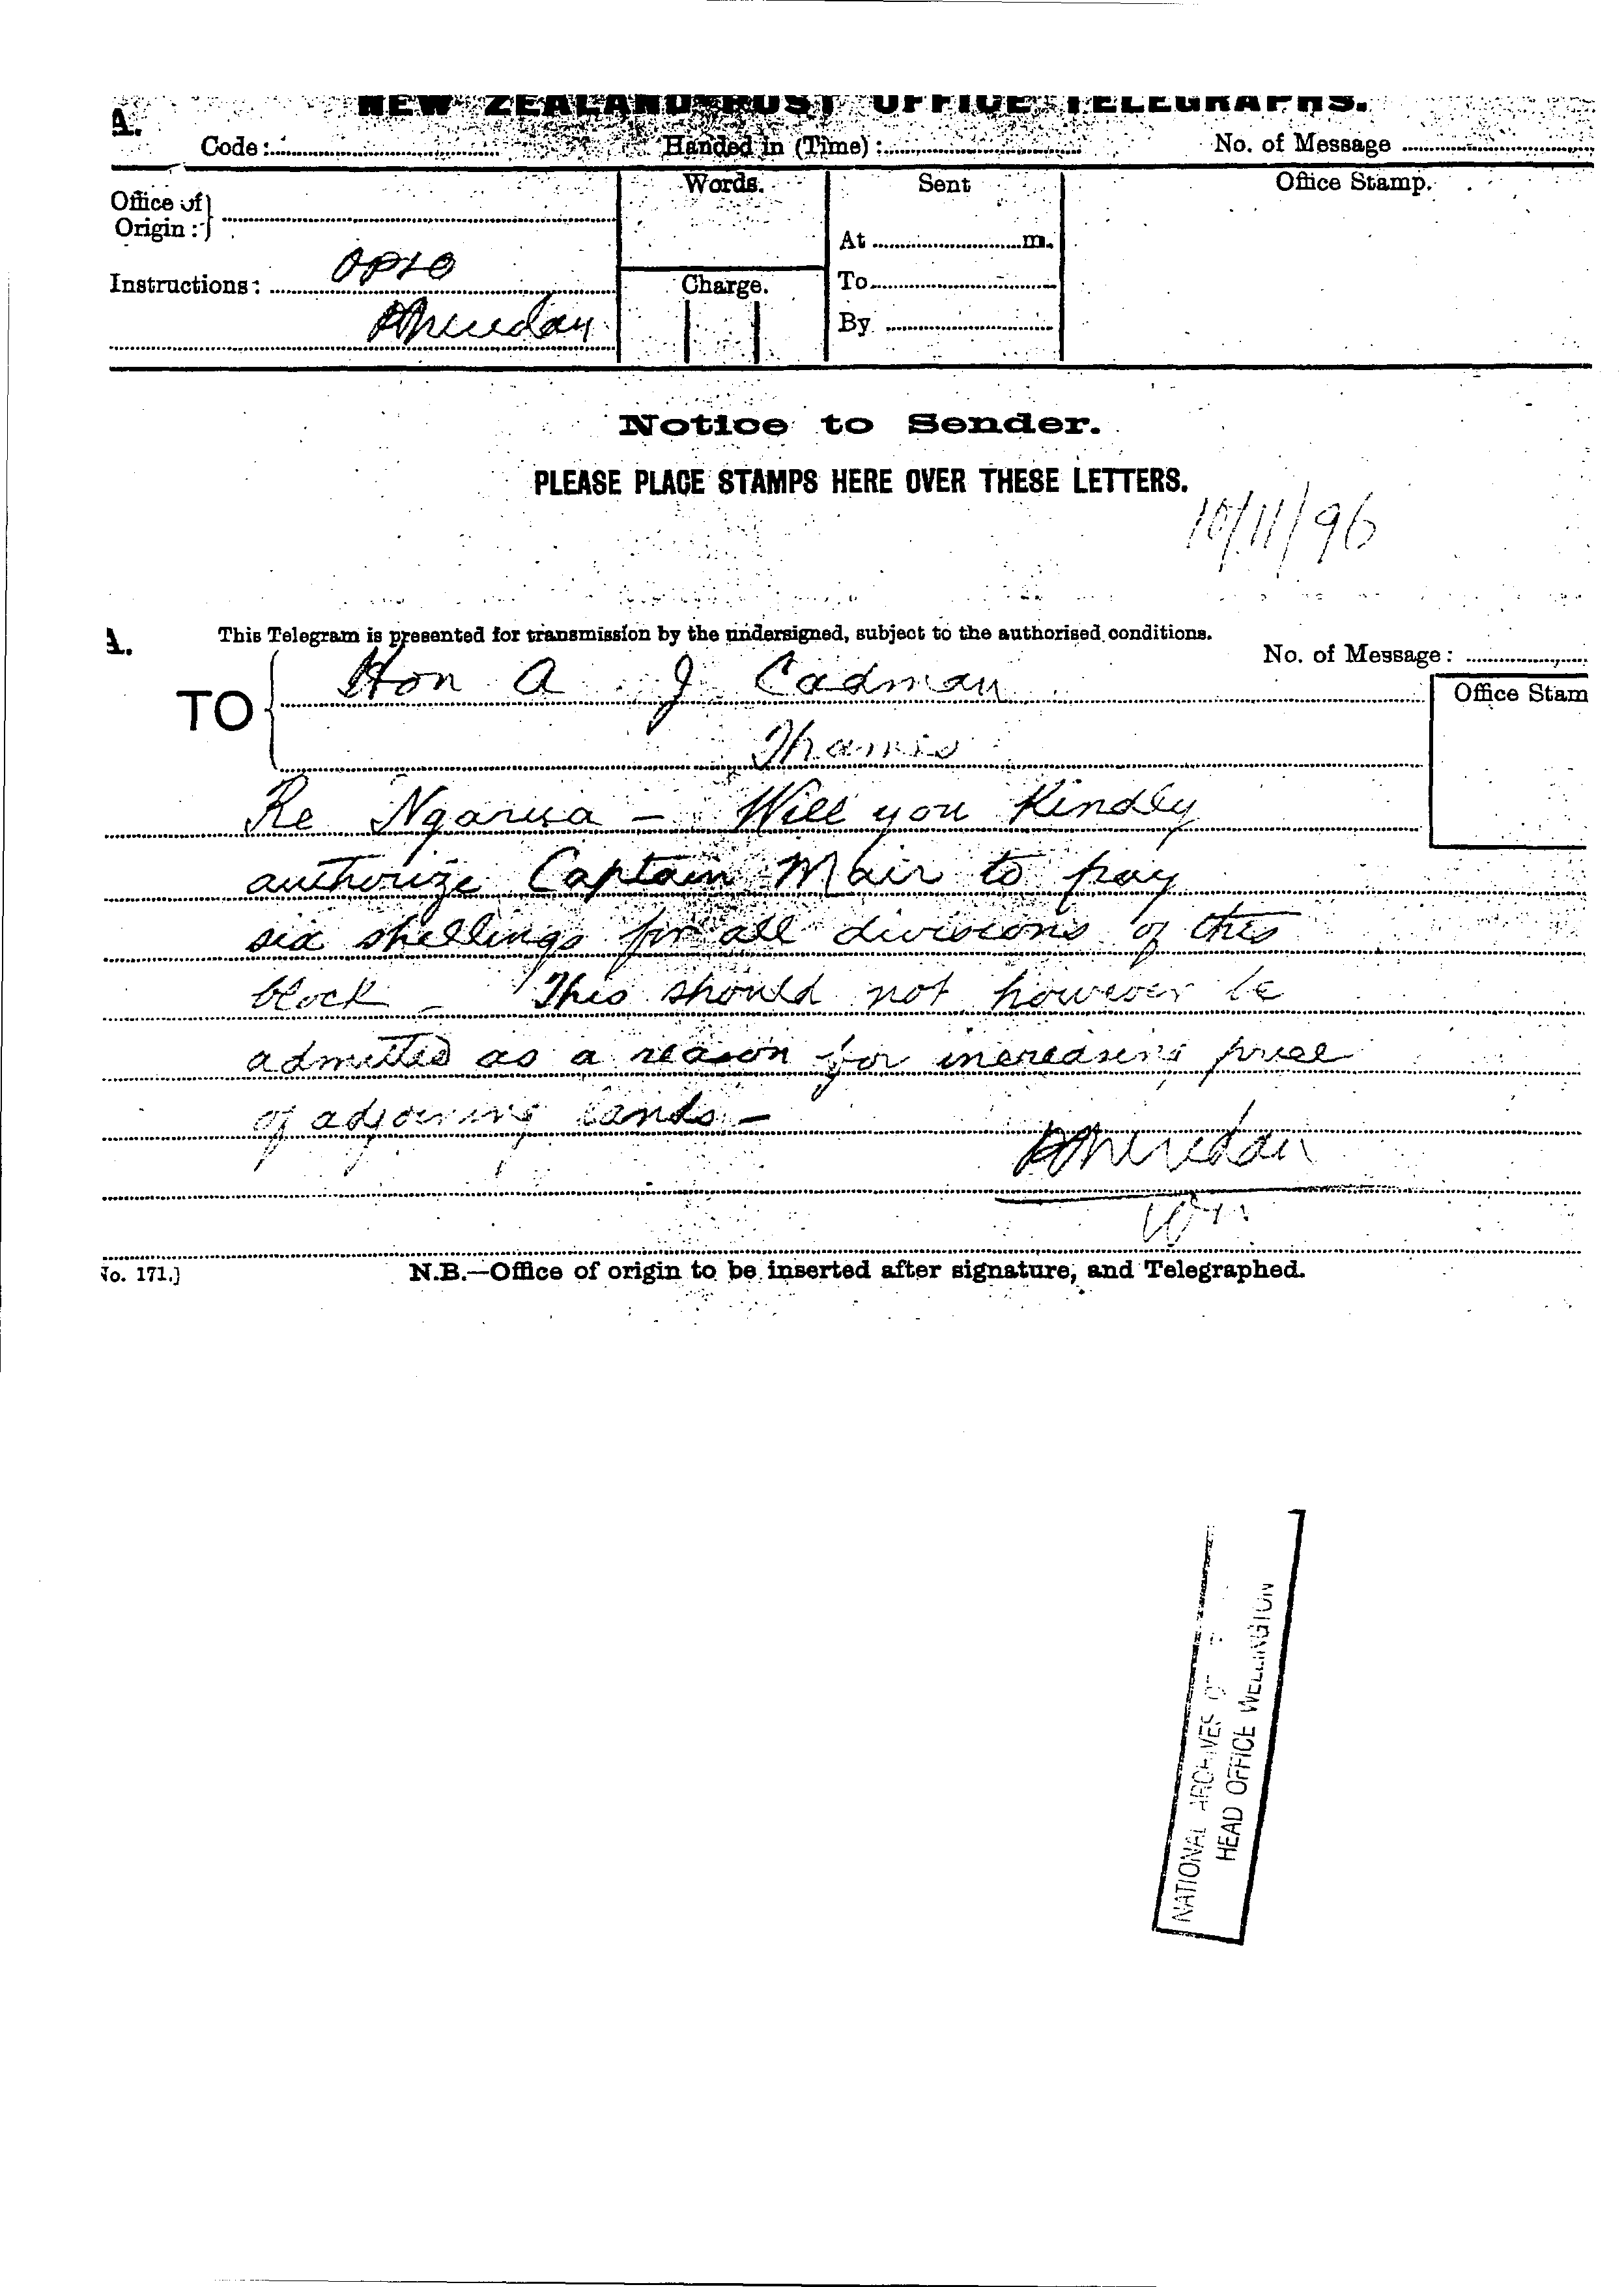 NEW ZEALAND POST OFFICE TELEGRAPHS.
A.
Code: Handed in (Time): No. of Message
Office of Origin: Words. Sent Office Stamp.
At m.
Instructions: Charge. To
PSheridan By
Notice to Sender.
PLEASE PLACE STAMPS HERE OVER THESE LETTERS.
10/11/96
A. This Telegram is presented for transmission by the undersigned, subject to the authorised conditions.
No. of Message:
TO Hon A J Cadman Office Stam
Thames
Re Ngarua – Will you Kindly
authorize Captain Mair to pay
six shillings for all divisions of this
block – This should not however be
admitted as a reason for increasing price
of adjoining lands –
PSheridan
No. 171.] N.B.—Office of origin to be inserted after signature, and Telegraphed.
NATIONAL ARCHIVES OF
HEAD OFFICE WELLINGTON